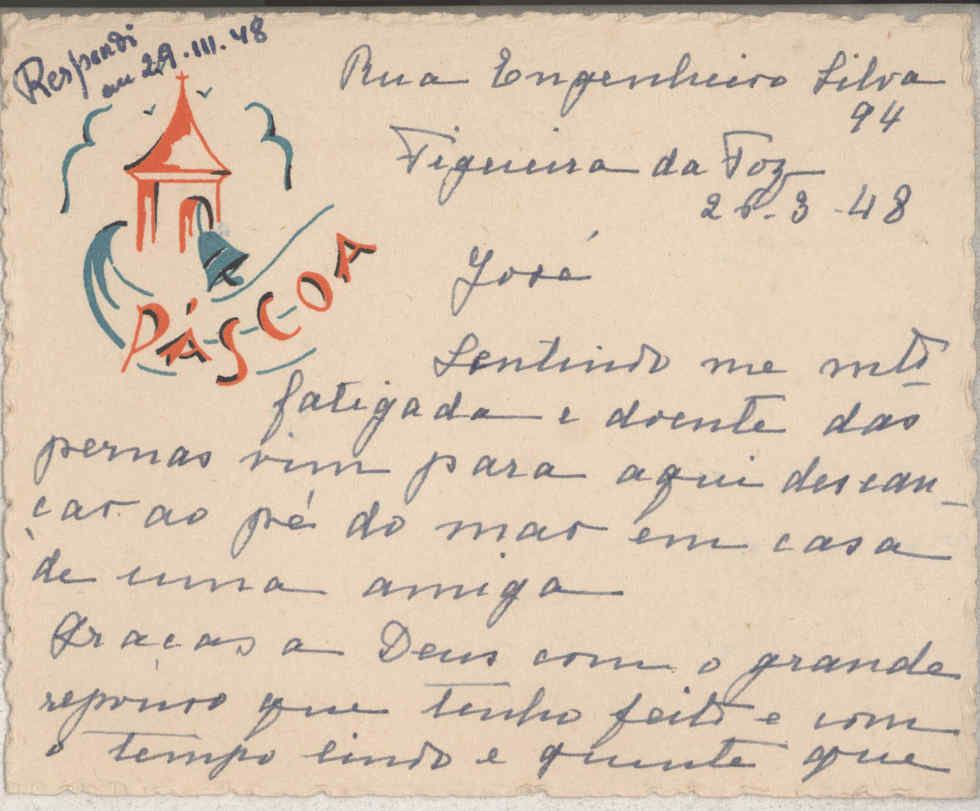 Respondi
em 29.III.48
Rua Engenheiro Silva
94
Figueira da Foz
26-3-48
PÁSCOA
José
Sentindo me mtº
fatigada e doente das
pernas vim para aqui descan-
çar ao pé do mar em casa
de uma amiga
Graças a Deus com o grande
repouso que tenho feito e com
o tempo lindo e quente que